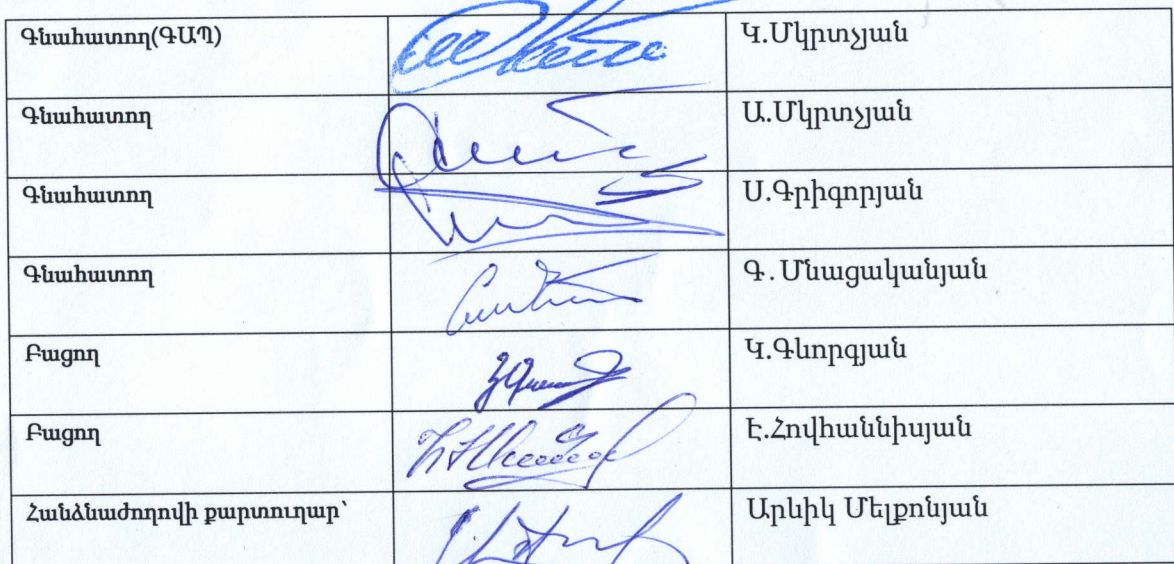 Գնահատող(ԳԱՊ) Կ.Մկրտչյան
Գնահատող Ա.Մկրտչյան
Գնահատող Ս.Գրիգորյան
Գնահատող Գ. Մնացականյան
Բացող Կ.Գևորգյան
Բացող Է.Հովհաննիսյան
Հանձնաժողովի քարտուղար՝ Արևիկ Մելքոնյան